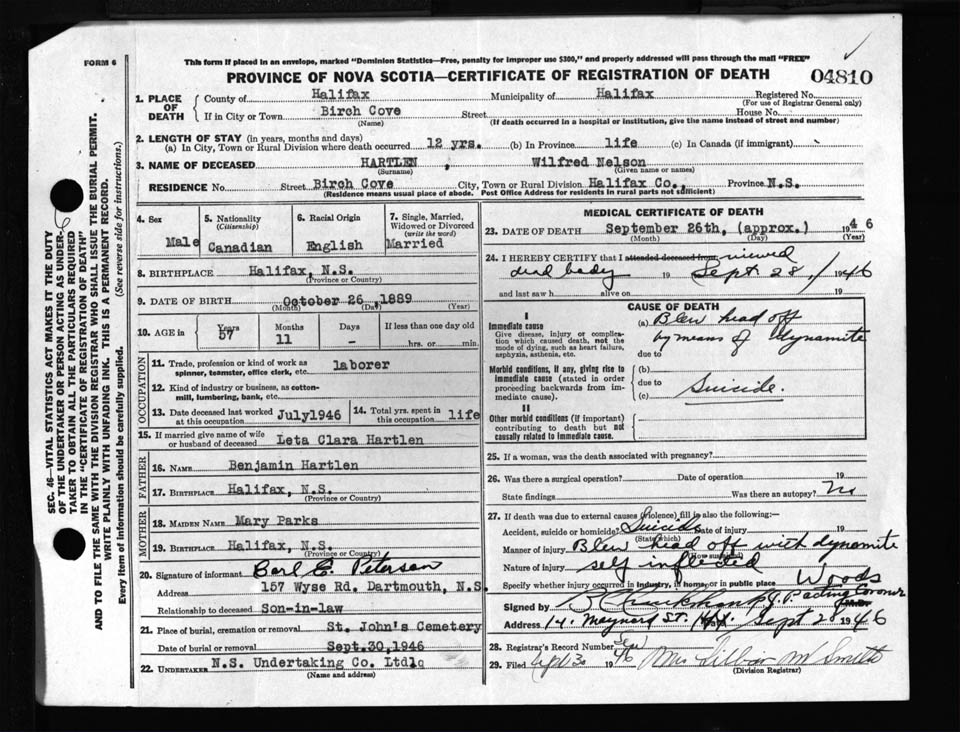 FORM 6
This form if placed in an envelope, marked "Dominion Statistics—Free, penalty for improper use $300," and properly addressed will pass through the mail "FREE"
PROVINCE OF NOVA SCOTIA—CERTIFICATE OF REGISTRATION OF DEATH 04810
1. PLACE OF DEATH County of Halifax Municipality of Halifax Registered No.
(For use of Registrar General only)
If in City or Town Birch Cove Street House No.
(Name) (If death occurred in a hospital or institution, give the name instead of street and number)
2. LENGTH OF STAY (in years, months and days)
(a) In City, Town or Rural Division where death occurred 12 yrs. (b) In Province life (c) In Canada (if immigrant)
3. NAME OF DECEASED HARTLEN, Wilfred Nelson
(Surname) (Given name or names)
RESIDENCE No. Street Birch Cove City, Town or Rural Division Halifax Co., Province N.S.
(Residence means usual place of abode. Post Office Address for residents in rural parts not sufficient)
4. Sex 5. Nationality (Citizenship) 6. Racial Origin 7. Single, Married, Widowed or Divorced (write the word)
Male Canadian English Married
8. BIRTHPLACE Halifax, N.S.
(Province or Country)
9. DATE OF BIRTH October 26, 1889
(Month) (Day) (Year)
10. AGE in Years Months Days If less than one day old
57 11 - hrs. or min.
OCCUPATION
11. Trade, profession or kind of work as spinner, teamster, office clerk, etc. laborer
12. Kind of industry or business, as cotton-mill, lumbering, bank, etc.
13. Date deceased last worked at this occupation July 1946 14. Total yrs. spent in this occupation life
15. If married give name of wife or husband of deceased Leta Clara Hartlen
FATHER
16. NAME Benjamin Hartlen
17. BIRTHPLACE Halifax, N.S.
(Province or Country)
MOTHER
18. MAIDEN NAME Mary Parks
19. BIRTHPLACE Halifax, N.S.
(Province or Country)
20. Signature of informant Earl E. Peterson
Address 157 Wyse Rd. Dartmouth, N.S.
Relationship to deceased Son-in-law
21. Place of burial, cremation or removal St. John's Cemetery
Date of burial or removal Sept. 30, 1946
22. UNDERTAKER N.S. Undertaking Co. Ltd
(Name and address)
MEDICAL CERTIFICATE OF DEATH
23. DATE OF DEATH September 26th, (approx.) 1946
(Month) (Day) (Year)
24. I HEREBY CERTIFY that I attended deceased from viewed
dead body 19 Sept. 28, 1946
and last saw h alive on 19
CAUSE OF DEATH
I
Immediate cause (a) Blew head off
Give disease, injury or complication which caused death, not the mode of dying, such as heart failure, asphyxia, asthenia, etc.
by means of dynamite
due to
Morbid conditions, if any, giving rise to immediate cause (stated in order proceeding backwards from immediate cause).
(b)
due to
(c) Suicide.
II
Other morbid conditions (if important) contributing to death but not causally related to immediate cause.
25. If a woman, was the death associated with pregnancy?
26. Was there a surgical operation? Date of operation 19
State findings Was there an autopsy? No
27. If death was due to external causes (violence) fill in also the following:—
Accident, suicide or homicide? Suicide Date of injury 19
(State which)
Manner of injury Blew head off with dynamite
(How sustained)
Nature of injury self inflicted
Specify whether injury occurred in industry, in home, or in public place Woods
Signed by Acting Coroner M.D.
Address 14 Maynard St. Hfx. Sept 28 1946
28. Registrar's Record Number
29. Filed Sept 30 1946 Mrs Lillian M Smith
(Division Registrar)
SEC. 46—VITAL STATISTICS ACT MAKES IT THE DUTY
OF THE UNDERTAKER OR PERSON ACTING AS UNDERTAKER
TO OBTAIN ALL THE PARTICULARS REQUIRED
IN THE "CERTIFICATE OF REGISTRATION OF DEATH"
AND TO FILE THE SAME WITH THE DIVISION REGISTRAR WHO SHALL ISSUE THE BURIAL PERMIT.
WRITE PLAINLY WITH UNFADING INK. THIS IS A PERMANENT RECORD.
Every item of information should be carefully supplied. (See reverse side for instructions.)